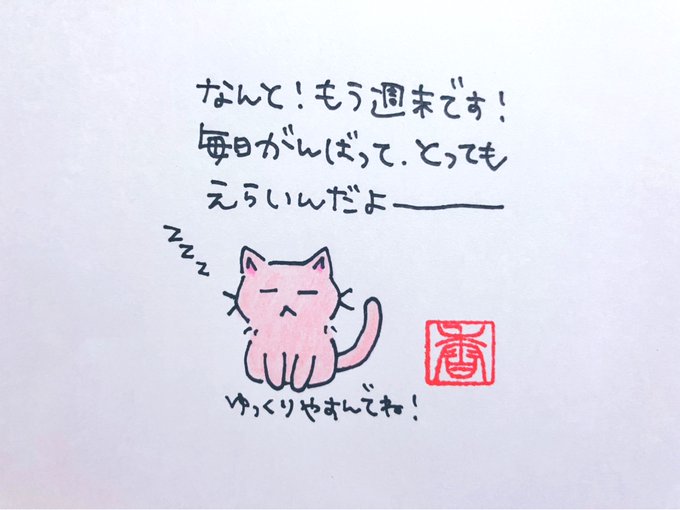 なんと！もう週末です！
毎日がんばって、とっても
えらいんだよ———
zzz
ゆっくりやすんでね！
香